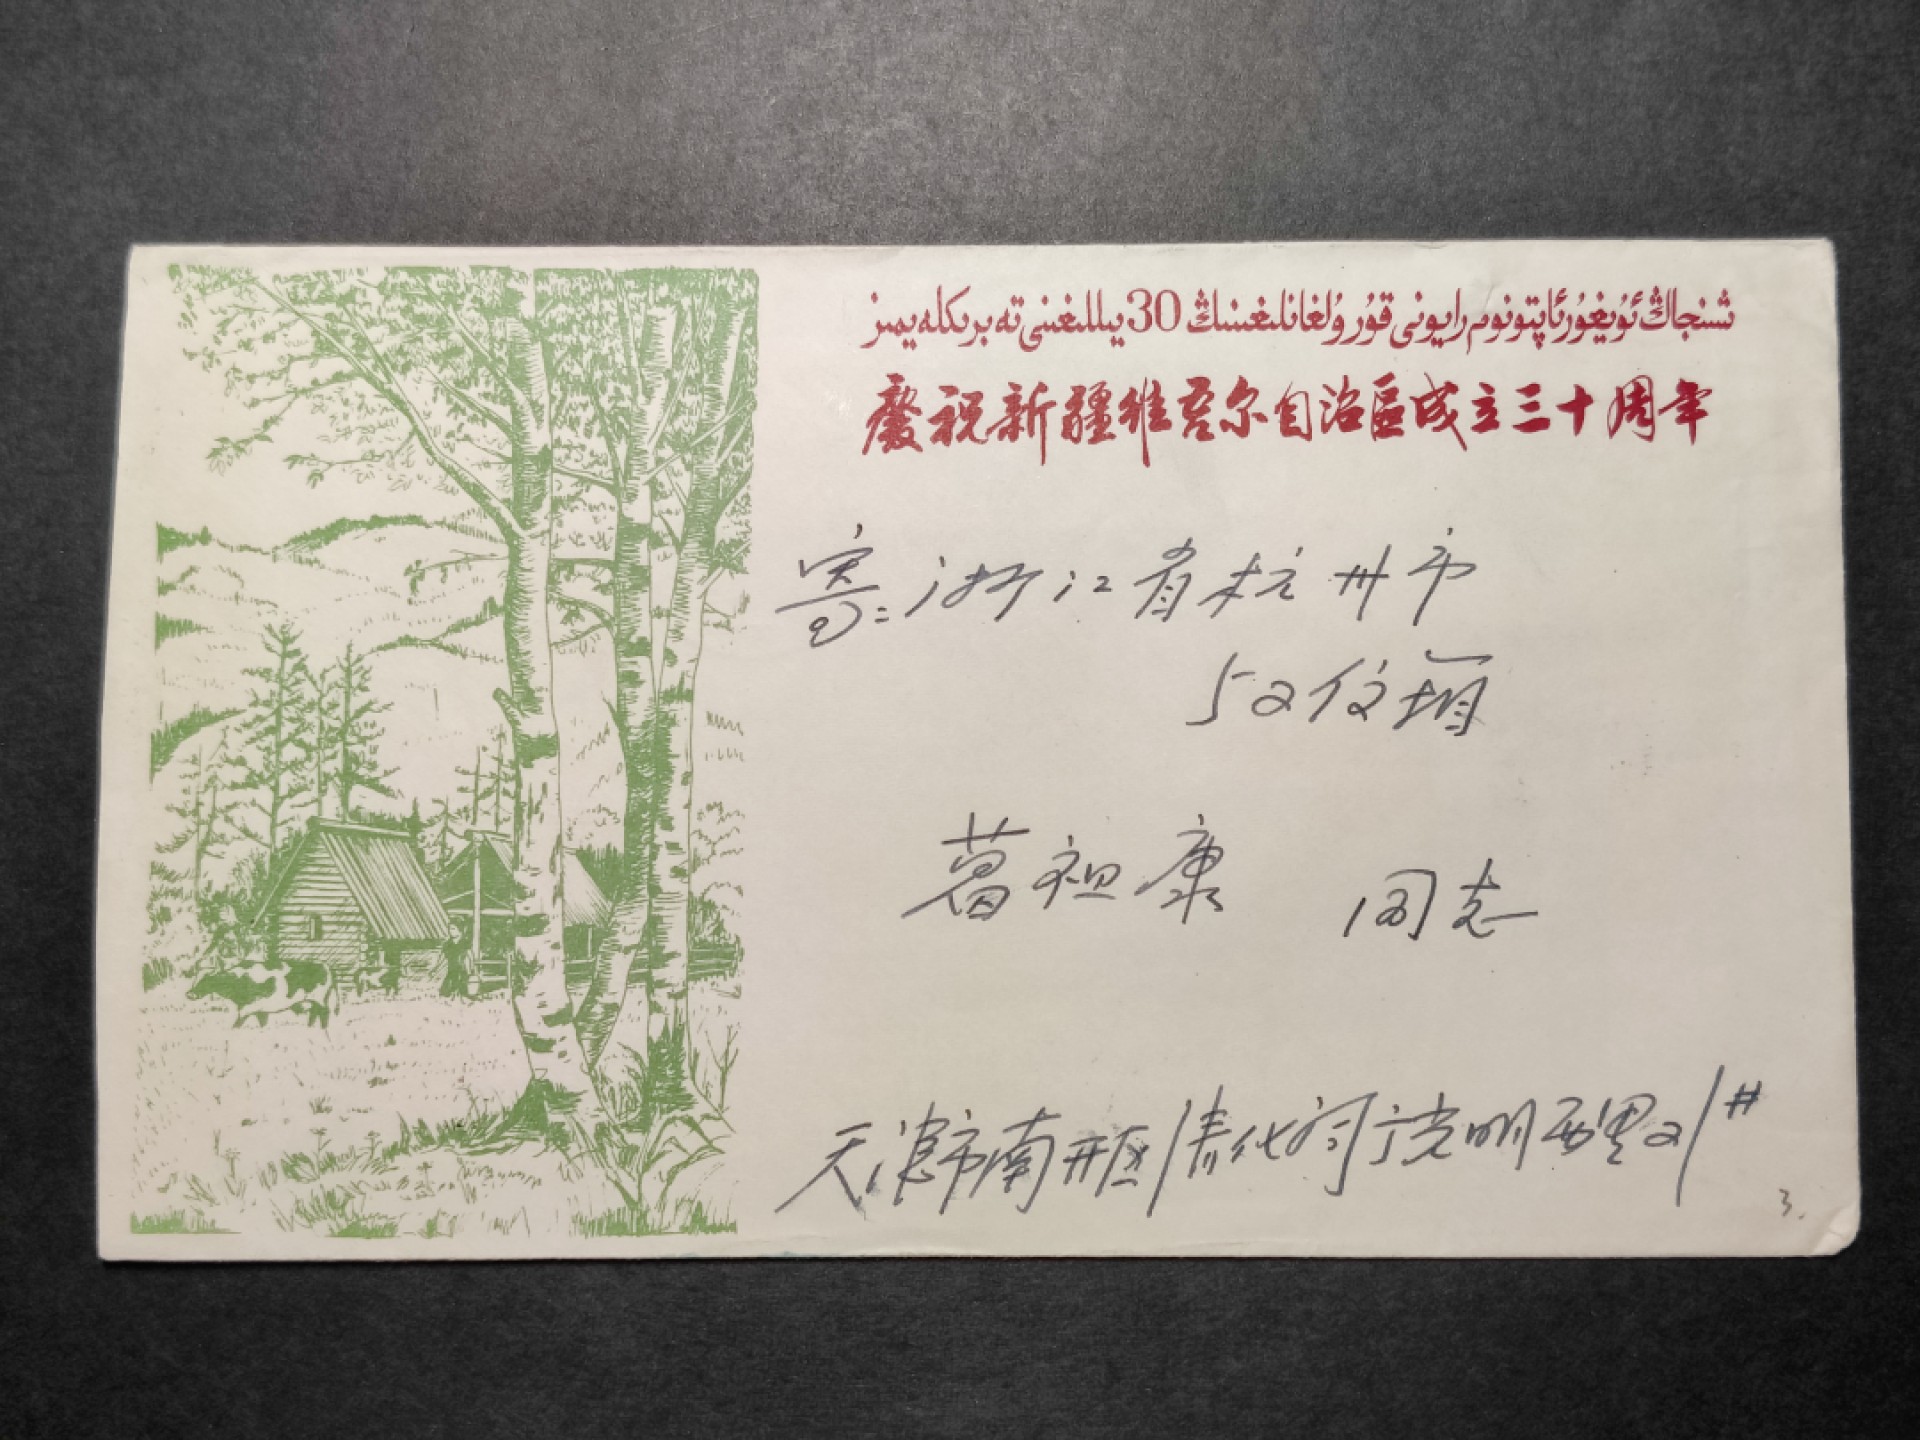 شىنجاڭ ئۇيغۇر ئاپتونوم رايونى قۇرۇلغانلىغىنىڭ 30 يىللىغىنى تەبرىكلەيمىز
慶祝新疆维吾尔自治區成立三十周年
寄:浙江省杭州市
葛祖康 同志
天津市南开区清化祠 光明西里21#
3.